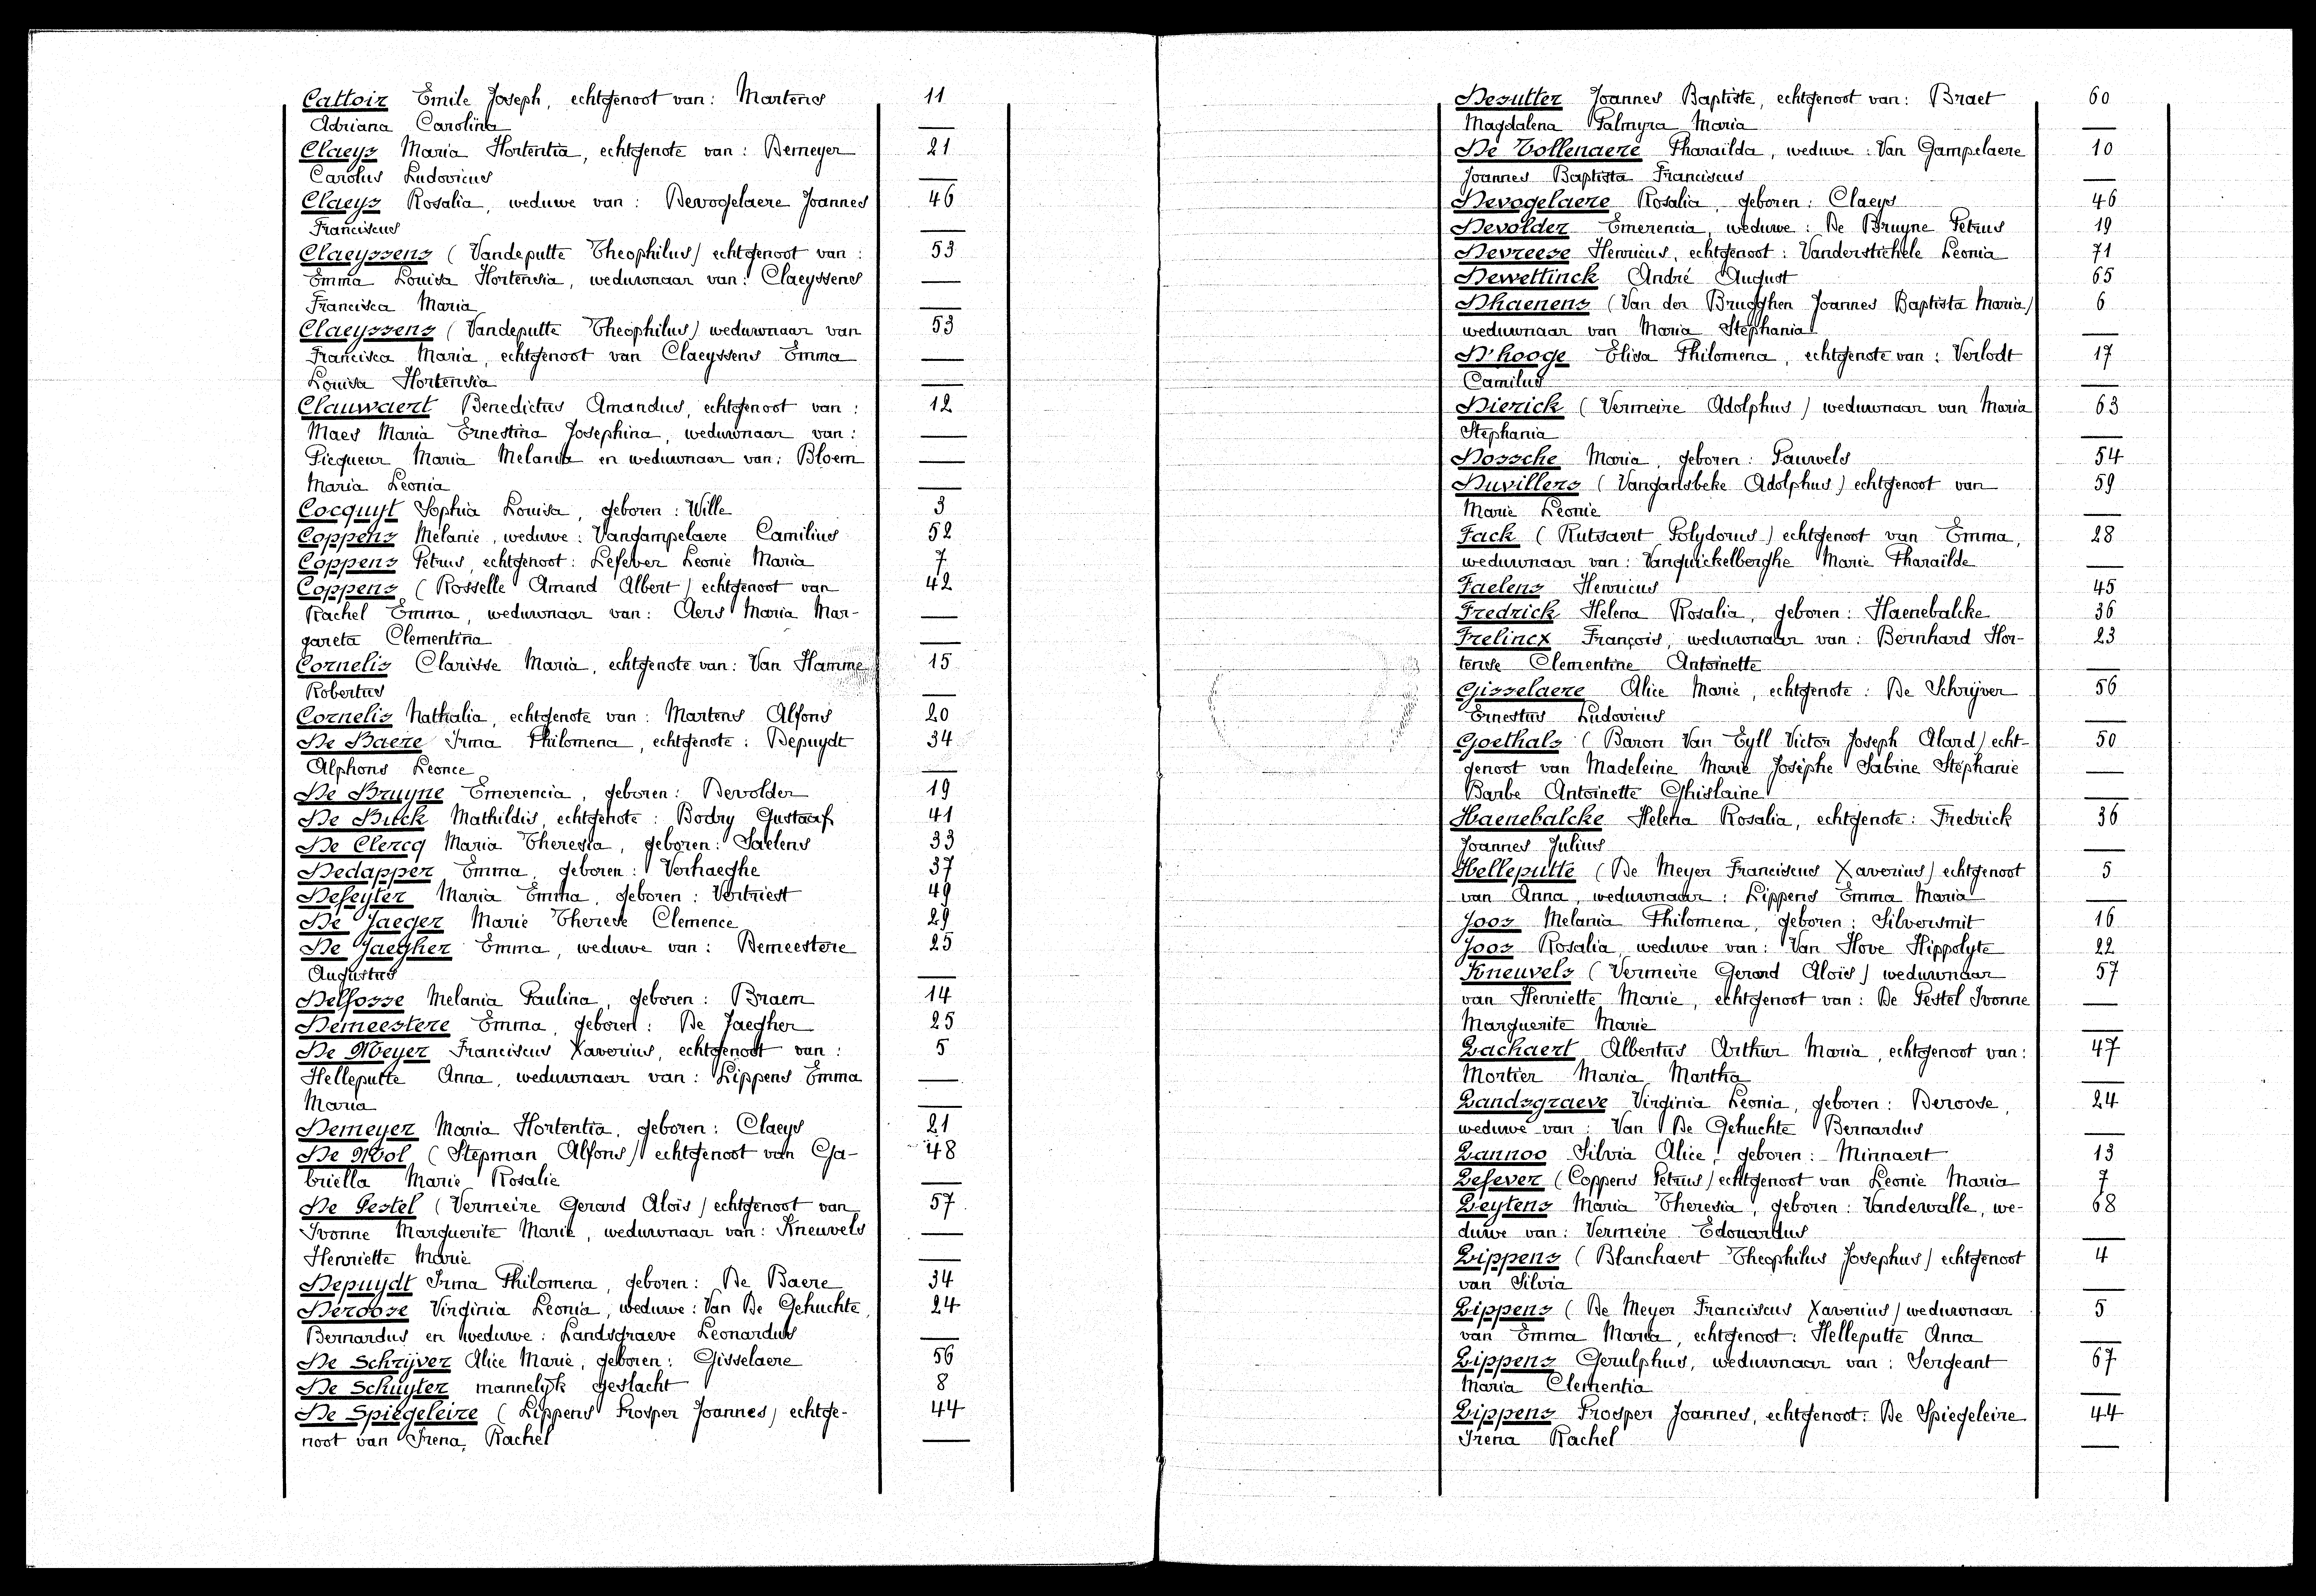 Cattoir Emile Joseph, echtgenoot van: Martens 11
Adriana Carolina —
Claeys Maria Hortentia, echtgenote van: Demeyer 21
Carolus Ludovicus —
Claeys Rosalia, weduwe van: Devogelaere Joannes 46
Franciscus —
Claeyssens (Vandeputte Theophilus) echtgenoot van: 53
Emma Louisa Hortensia, weduwnaar van: Claeyssens —
Francisca Maria
Claeyssens (Vandeputte Theophilus) weduwnaar van 53
Francisca Maria, echtgenoot van Claeyssens Emma —
Louisa Hortensia —
Clauwaert Benedictus Amandus, echtgenoot van: 12
Maes Maria Ernestina Josephina, weduwnaar van: —
Picqueur Maria Melania en weduwnaar van: Bloem —
Maria Leonia —
Cocquyt Sophia Louisa, geboren: Wille 3
Coppens Melanie, weduwe: Vangampelaere Camilius 52
Coppens Petrus, echtgenoot: Lefever Leonie Maria 7
Coppens (Rosselle Amand Albert) echtgenoot van 42
Rachel Emma, weduwnaar van: Aers Maria Mar- —
gareta Clementina —
Cornelis Clarisse Maria, echtgenote van: Van Hamme 15
Robertus —
Cornelis Nathalia, echtgenote van: Martens Alfons 20
De Baere Irma Philomena, echtgenote: Depuydt 34
Alphons Leonce —
De Bruyne Emerencia, geboren: Devolder 19
De Buck Mathildis, echtgenote: Bodry Gustaaf 41
De Clercq Maria Theresia, geboren: Saelens 33
Dedapper Emma, geboren: Verhaeghe 37
Deseyter Maria Emma, geboren: Vertriest 49
De Jaeger Marie Therese Clemence 29
De Jaegher Emma, weduwe van: Demeestere 25
Augustus —
Delfosse Melania Paulina, geboren: Braem 14
Demeestere Emma, geboren: De Jaegher 25
De Meyer Franciscus Xaverius, echtgenoot van: 5
Helleputte Anna, weduwnaar van: Lippens Emma —
Maria —
Demeyer Maria Hortentia, geboren: Claeys 21
De Mol (Stepman Alfons) echtgenoot van Ga- 48
briella Marie Rosalie —
De Pestel (Vermeire Gerard Aloïs) echtgenoot van 57
Ivonne Marguerite Marie, weduwnaar van: Kneuvels —
Henriette Marie —
Depuydt Irma Philomena, geboren: De Baere 34
Deroose Virginia Leonia, weduwe: Van De Gehuchte, 24
Bernardus en weduwe: Landsgraeve Leonardus —
De Schrijver Alice Marie, geboren: Gisselaere 56
De Schuyter mannelijk geslacht 8
De Spiegeleire (Lippens Prosper Joannes) echtge- 44
noot van Irena, Rachel —
Desutter Joannes Baptiste, echtgenoot van: Braet 60
Magdalena Palmyra Maria —
De Vollenaere Pharaïlda, weduwe: Van Gampelaere 10
Joannes Baptista Franciscus —
Devogelaere Rosalia, geboren: Claeys 46
Devolder Emerencia, weduwe: De Bruyne Petrus 19
Devreese Henricus, echtgenoot: Vanderstichele Leonia 71
Dewettinck André August 65
Dhaenens (Van der Brugghen Joannes Baptista Maria) 6
weduwnaar van Maria Stephania —
D'hooge Elisa Philomena, echtgenote van: Verlodt 17
Camilus —
Dierick (Vermeire Adolphus) weduwnaar van Maria 63
Stephania —
Dossche Maria, geboren: Pauwels 54
Duvillers (Vangansbeke Adolphus) echtgenoot van 59
Marie Leonie —
Fack (Rutsaert Polydorus) echtgenoot van Emma, 28
weduwnaar van: Vanquickelberghe Marie Pharaïlde —
Faelens Henricus 45
Fredrick Helena Rosalia, geboren: Haenebalcke 36
Frelincx François, weduwnaar van: Bernhard Hor- 23
tense Clementine Antoinette —
Gisselaere Alice Marie, echtgenote: De Schrijver 56
Ernestus Ludovicus —
Goethals (Baron Van Eyll Victor Joseph Alard) echt- 50
genoot van Madeleine Marie Josèphe Sabine Stéphanie —
Barbe Antoinette Ghislaine —
Haenebalcke Helena Rosalia, echtgenote: Fredrick 36
Joannes Julius —
Helleputte (De Meyer Franciscus Xaverius) echtgenoot 5
van Anna, weduwnaar: Lippens Emma Maria —
Joos Melania Philomena, geboren: Silversmit 16
Joos Rosalia, weduwe van: Van Hove Hippolyte 22
Kneuvels (Vermeire Gerard Aloïs) weduwnaar 57
van Henriette Marie, echtgenoot van: De Pestel Ivonne —
Marguerite Marie —
Lachaert Albertus Arthur Maria, echtgenoot van: 47
Mortier Maria Martha —
Landsgraeve Virginia Leonia, geboren: Deroose, 24
weduwe van: Van De Gehuchte Bernardus —
Lannoo Silvia Alice, geboren: Minnaert 13
Lefever (Coppens Petrus) echtgenoot van Leonie Maria 7
Leytens Maria Theresia, geboren: Vandewalle, we- 68
duwe van: Vermeire Edouardus —
Lippens (Blanchaert Theophilus Josephus) echtgenoot 4
van Silvia —
Lippens (De Meyer Franciscus Xaverius) weduwnaar 5
van Emma Maria, echtgenoot: Helleputte Anna —
Lippens Gerulphus, weduwnaar van: Sergeant 67
Maria Clementia —
Lippens Prosper Joannes, echtgenoot: De Spiegeleire 44
Irena Rachel —